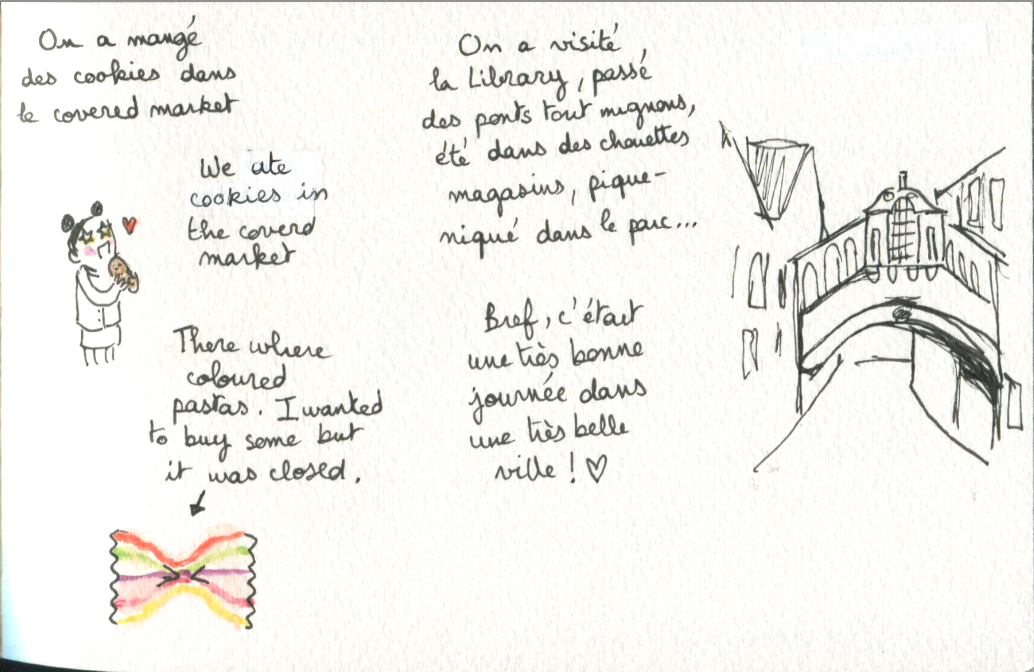 On a mangé
des cookies dans
le covered market
We ate
cookies in
the coverd
market
There where
coloured
pastas. I wanted
to buy some but
it was closed.
On a visité
la Library, passé
des ponts tout mignons,
été dans des chouettes
magasins, pique-
niqué dans le parc...
Bref, c'était
une très bonne
journée dans
une très belle
ville ! ♡